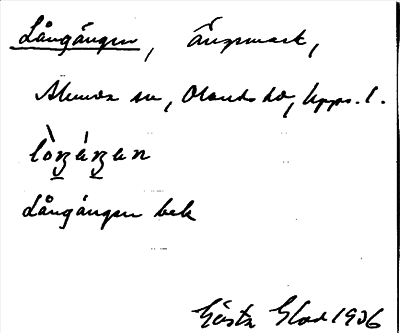 Långängen, Ängsmark,
Alunda sn, Olands hd, Upps. l.
lòŋáŋan
Långängen bek
Gösta Glad 1936